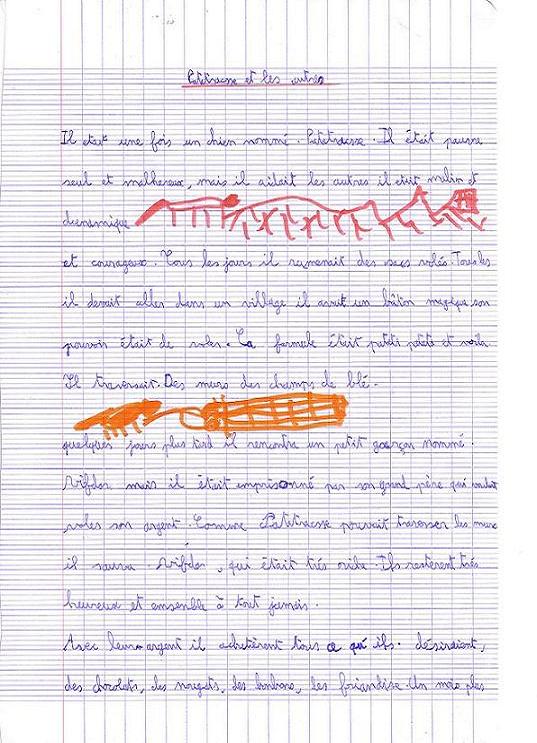 Patetrasse et les autres
Il était une fois un chien nommé. Patetrasse. Il était pauvre
seul et malhereux, mais il aidait les autres il était malin et
et courageux. Tous les jours il ramenait des sacs volés. Tous les
il devait aller dans un village il avait un bâton magique son
pouvoir était de voler. La formule était patati patata et voila.
Il traversait. Des murs des champs de blé.
quelques jours plus tard il rencontra un petit garçon nommé.
mais il était emprisonné par son grand père qui voulait
voler son argent. Comme Patetrasse pouvait traverser les murs
il sauva. , qui était très Ils restèrent très
heureux et ensemble à tout jamais.
Avec leur argent il achetèrent tous ce qu'ils. désiraient,
des chocolats, des nougats, des bonbons, les friandise. Un mois plus